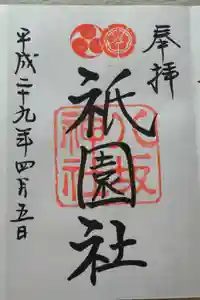 奉拝
祇園社
八坂神社
平成二十九年四月五日